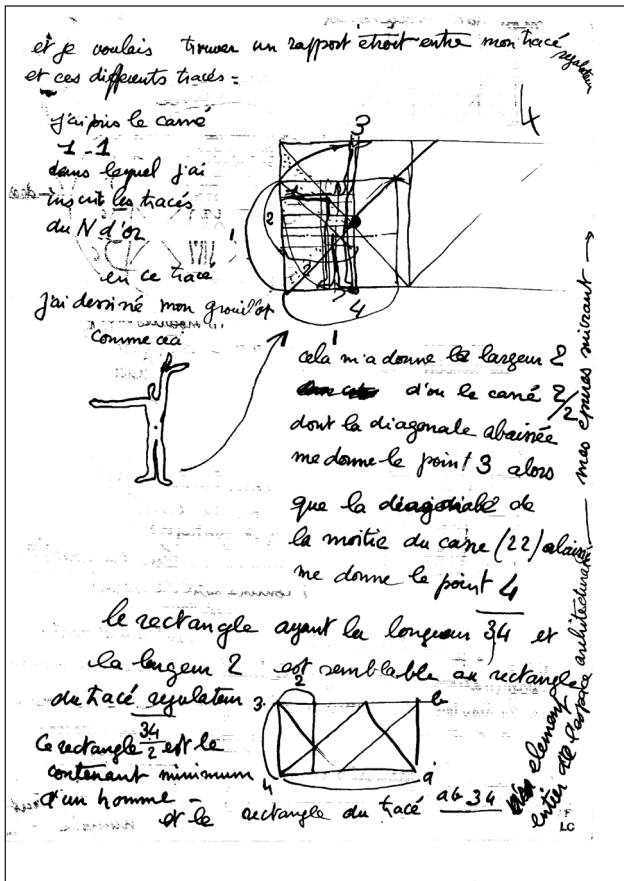 et je voulais trouver un rapport étroit entre mon tracé régulateur
et ces différents tracés =
4
j'ai pris le carré
1-1
dans lequel j'ai
inscrit les tracés
du N d'or
en ce tracé
j'ai dessiné mon
comme ceci
3
1
2
2
4
1
cela m'a donné la largeur 2
d'ou le carré 2/2
dont la diagonale abaissée
me donne le point 3 alors
que la diagonale de
la moitié du carré (22) abaissée
me donne le point 4
le rectangle ayant la longueur 34 et
la largeur 2 est semblable au rectangle
du tracé régulateur
Ce rectangle 34/2 est le
contenant minimum
d'un homme -
et le rectangle du tracé ab 34
3
2
b
4
a
element
entier de l'espace architectural — mes épures suivant →
F
LC